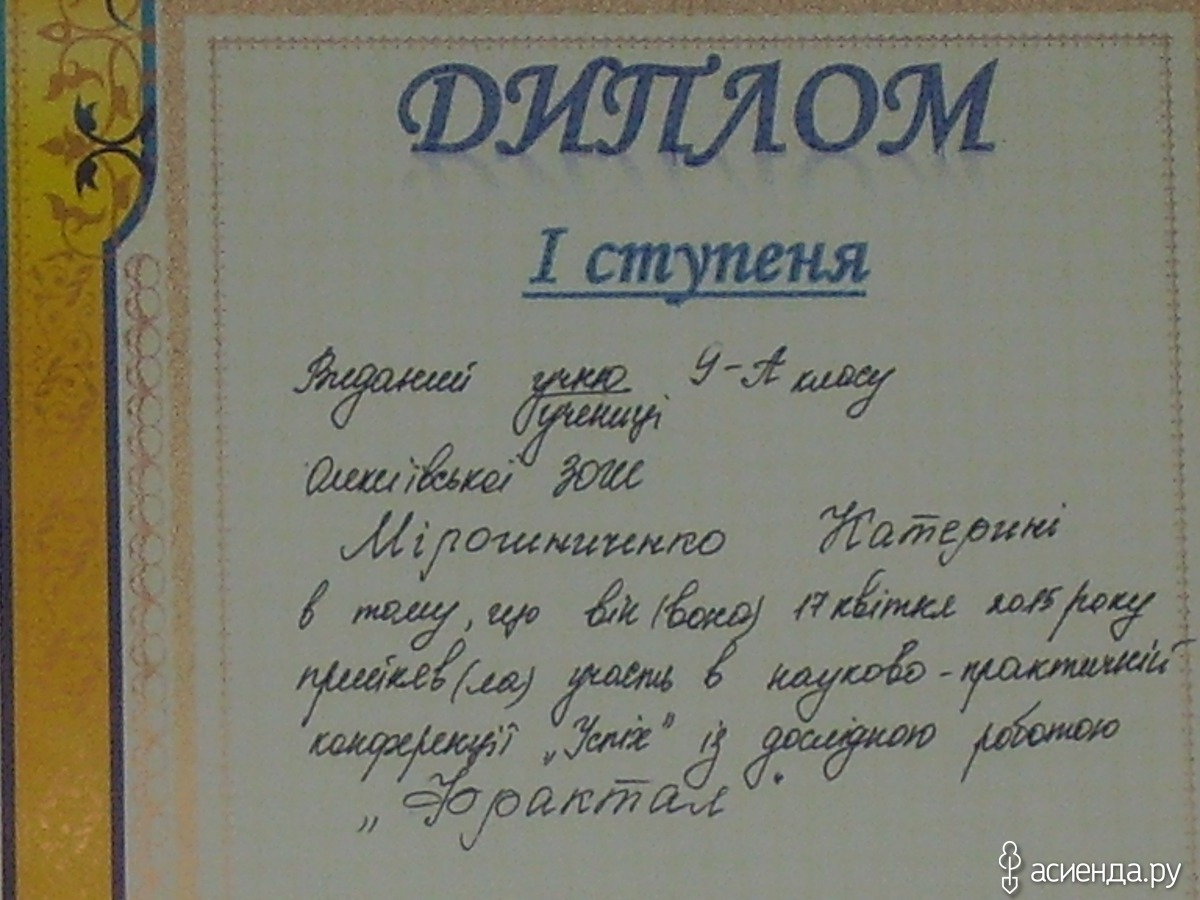 ДИПЛОМ
І ступеня
Виданий учню 9-А класу
учениці
Олексіївської ЗОШ
Мірошниченко Катерині
в тому, що він (вона) 17 квітня 2015 року
прийняв (ла) участь в науково-практичній
конференції „Успіх" із дослідною роботою
„Фрактал"
асиенда.ру